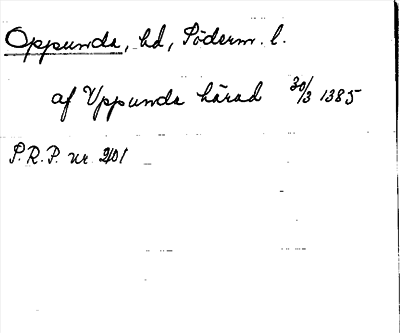 Oppunda, hd, Söderm. l.
af Uppunda härad 30/3 1385
P.R.P. nr 2401